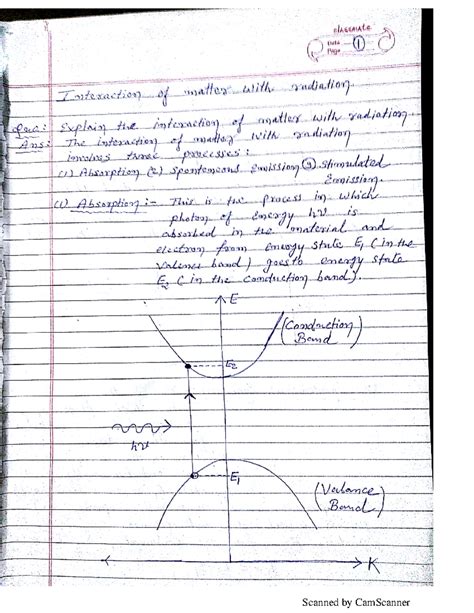 classmate
Date
Page 1
Interaction of matter with radiation.
Que: Explain the interaction of matter with radiation
Ans: The interaction of matter with radiation
involves three processes:
(1) Absorption (2) Spontaneous Emission (3) Stimulated
Emission.
(1) Absorption:- This is the process in which
photon of energy hν is
absorbed in the material and
electron from energy state E1 (in the
valence band) goes to energy state
E2 (in the conduction band).
E
(Conduction Band)
E2
hν
E1
(Valance Band)
K
Scanned by CamScanner